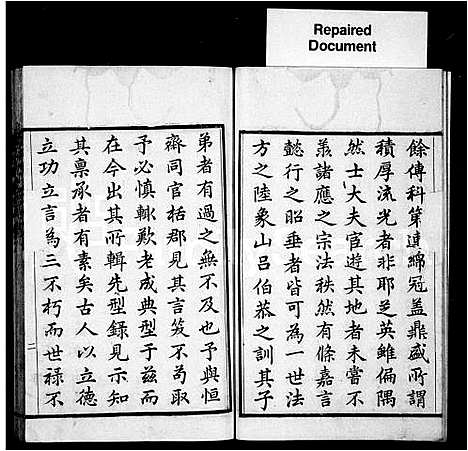 Repaired
Document
餘傳科第連綿冠蓋鼎盛所謂
積厚流光者非耶芝英雖偏隅
然士大夫宦遊其地者未嘗不
羨諸應之宗法秩然有條嘉言
懿行之昭垂者皆可為一世法
方之陸象山呂伯恭之訓其子
弟者有過之無不及也予與恒
齋同官栝郡見其言笑不苟取
予必慎輙歎老成典型于茲而
在今出其所輯先型錄見示知
其稟承者有素矣古人以立德
立功立言為三不朽而世祿不
二